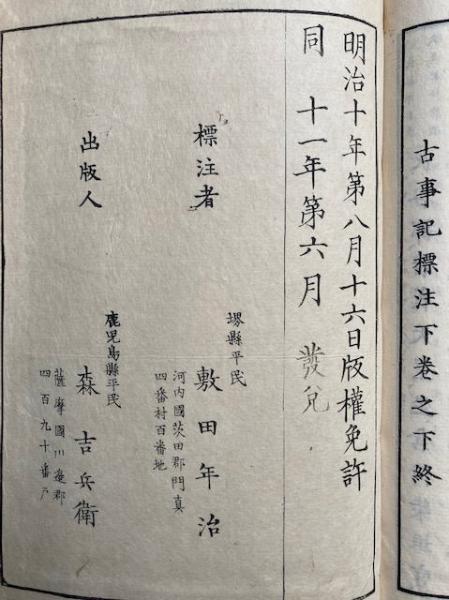 古事記標注下卷之下終
明治十年第八月十六日版權免許
同　十一年第六月　發兌
標注者
堺縣平民
敷田年治
河内國茨田郡門真
四番村百番地
出版人
鹿児島縣平民
森吉兵衛
薩摩國川邊郡
四百九十番戸